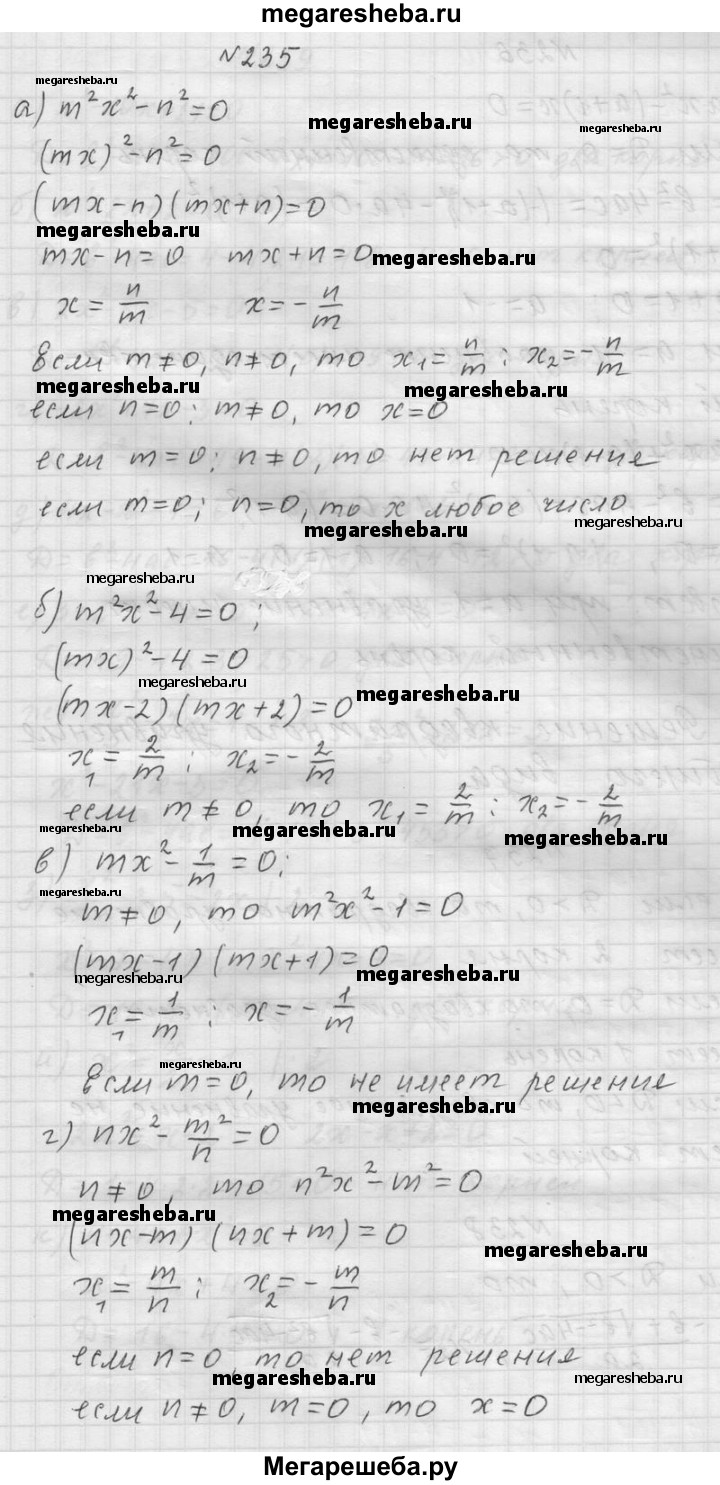 megaresheba.ru
№235
megaresheba.ru
а) m²x²-n²=0
megaresheba.ru
megaresheba.ru
(mx)²-n²=0
(mx-n)(mx+n)=0
megaresheba.ru
mx-n=0 mx+n=0
megaresheba.ru
x=n/m x=-n/m
если m≠0, n≠0, то x₁=n/m; x₂=-n/m
megaresheba.ru
megaresheba.ru
если n=0; m≠0, то x=0
если m=0; n≠0, то нет решение
если m=0; n=0, то x любое число
megaresheba.ru
megaresheba.ru
megaresheba.ru
б) m²x²-4=0;
(mx)²-4=0
megaresheba.ru
megaresheba.ru
(mx-2)(mx+2)=0
x₁=2/m; x₂=-2/m
если m≠0, то x₁=2/m; x₂=-2/m
megaresheba.ru
megaresheba.ru
megaresheba.ru
в) mx²-1/m=0;
m≠0, то m²x²-1=0
(mx-1)(mx+1)=0
megaresheba.ru
megaresheba.ru
x₁=1/m; x=-1/m
megaresheba.ru
если m=0, то не имеет решение
megaresheba.ru
г) nx²-m²/n=0
n≠0, то n²x²-m²=0
megaresheba.ru
(nx-m)(nx+m)=0
megaresheba.ru
x₁=m/n; x₂=-m/n
если n=0, то нет решения
megaresheba.ru
megaresheba.ru
если n≠0, m=0, то x=0
Мегарешеба.ру